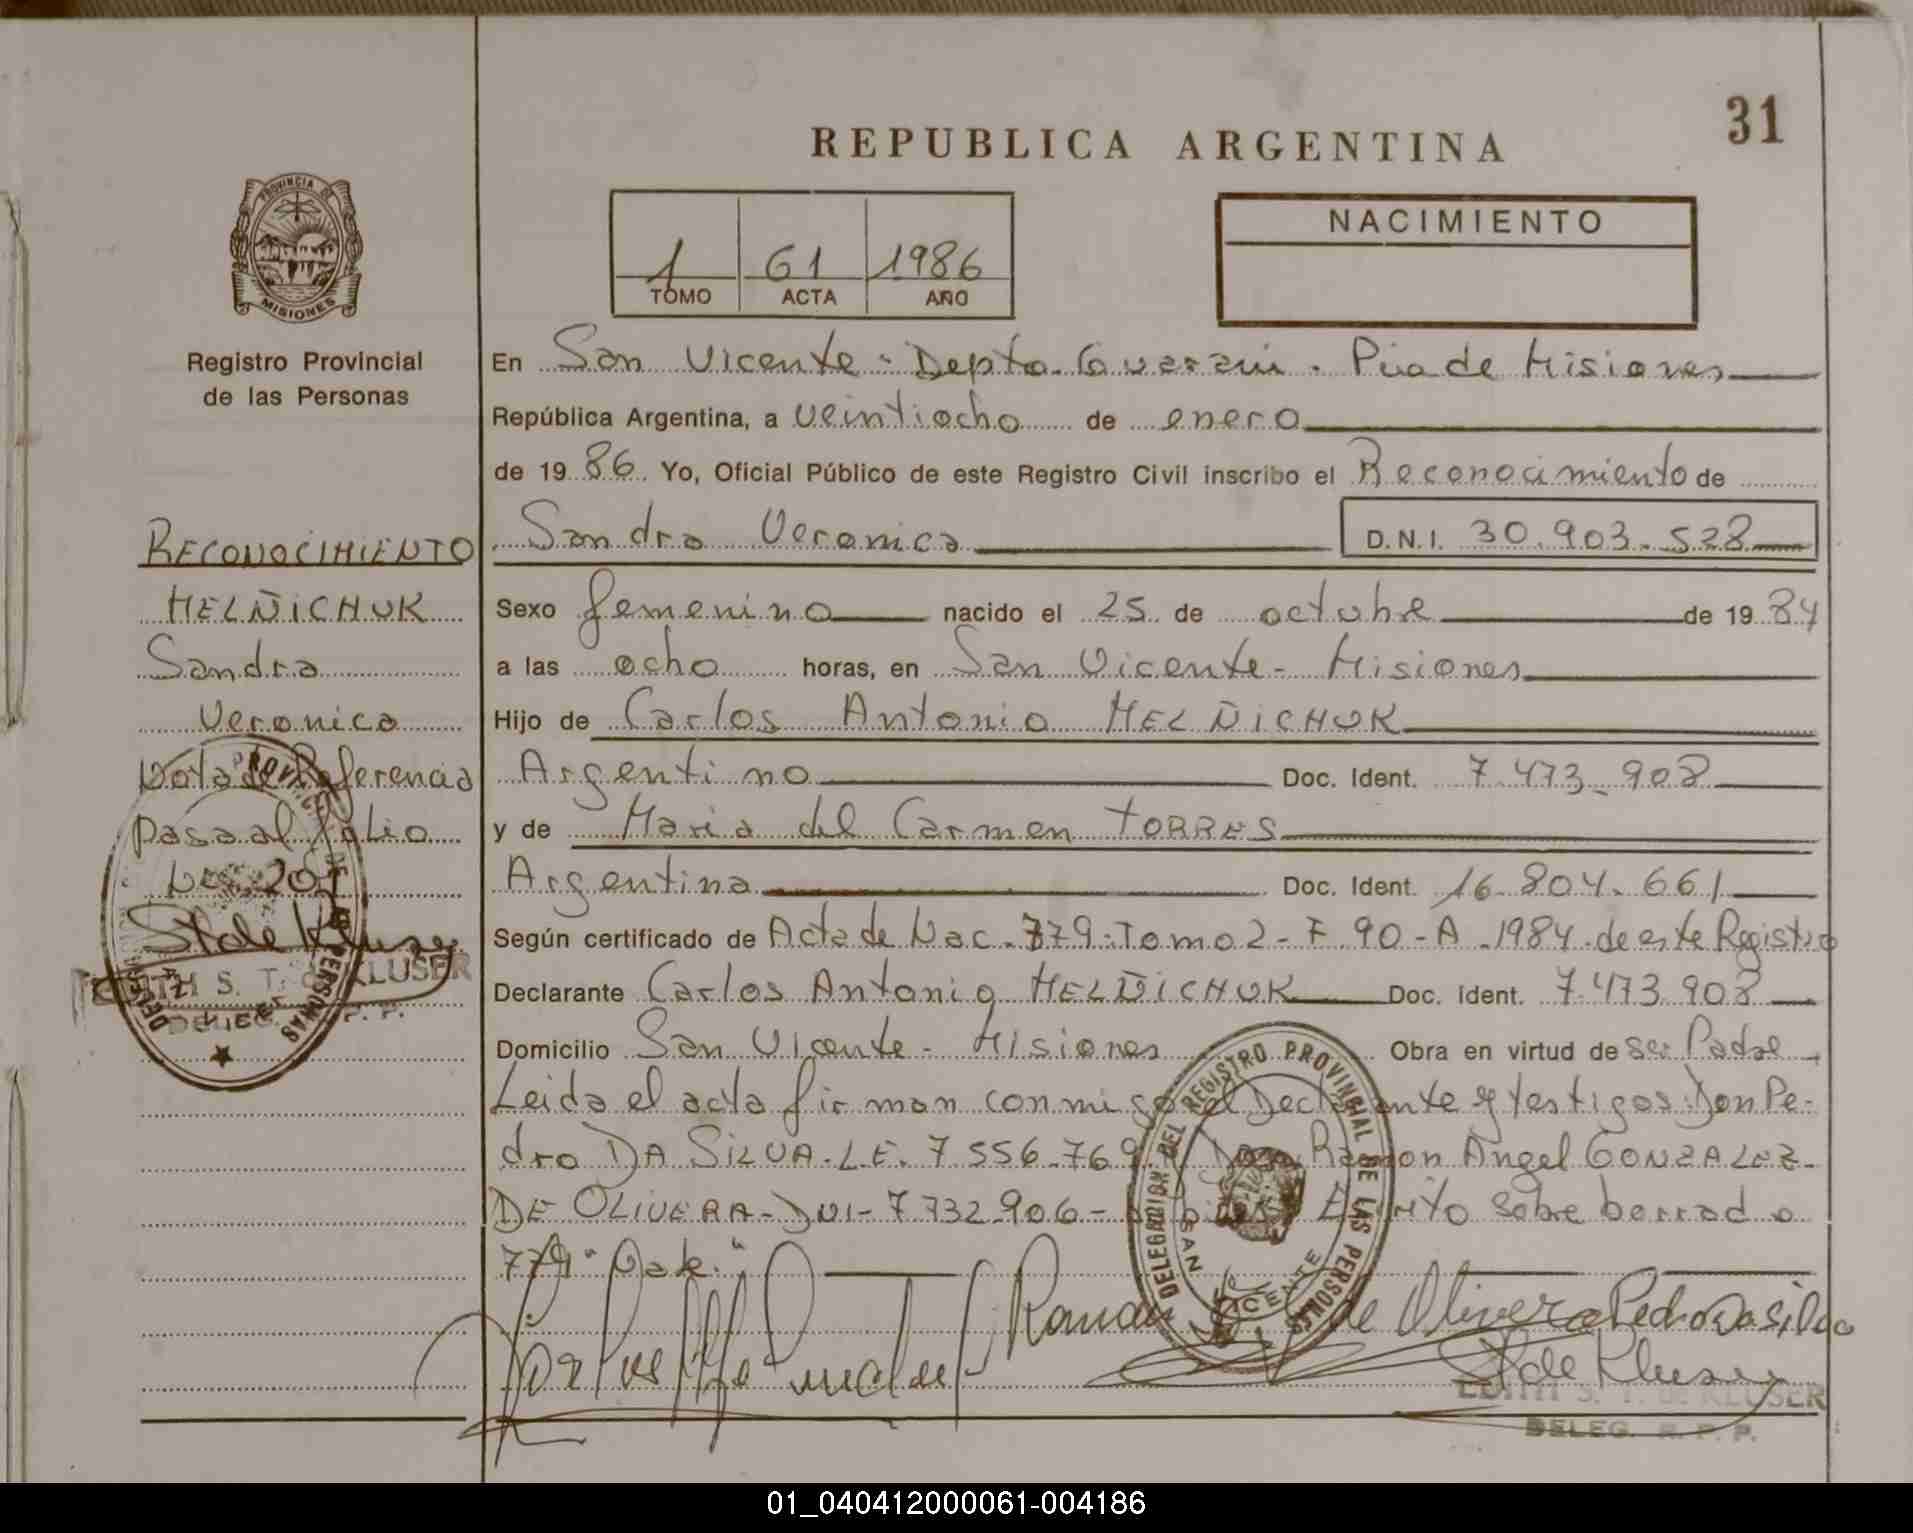 31
REPUBLICA ARGENTINA
PROVINCIA DE
MISIONES
1 61 1986
TOMO ACTA AÑO
NACIMIENTO
Registro Provincial
de las Personas
RECONOCIMIENTO
MELÑiCHUK
Sandra
Veronica
Nota de Referencia
pasa al folio
No 201
St de Kluser
EDITH S. T. DE KLUSER
DELEG. R. P. P.
En San Vicente - Depto. Guarani. Pcia de Misiones
República Argentina, a veintiocho de enero
de 19 86 Yo, Oficial Público de este Registro Civil inscribo el Reconocimiento de
Sandra Veronica D.N.I. 30.903.528
Sexo femenino nacido el 25 de octubre de 19 84
a las ocho horas, en San Vicente - Misiones
Hijo de Carlos Antonio MELÑiCHUK
Argentino Doc. Ident. 7.473.908
y de Maria del Carmen TORRES
Argentina Doc. Ident. 16.804.661
Según certificado de Acta de Nac. 779. Tomo 2 - F 90 - A - 1984 de este Registro
Declarante Carlos Antonio MELÑiCHUK Doc. Ident. 7.473.908
Domicilio San Vicente - Misiones Obra en virtud de ser Padre
Leida el acta firman conmigo el Declarante y testigos: Don Pe-
dro DA SILVA. L.E. 7.556.769 Don Ramon Angel GONZALEZ
DE OLIVERA - DNI - 7.732.906 - Escrito sobre borrado
779 "Vale."
DELEGACION DEL REGISTRO PROVINCIAL DE LAS PERSONAS
SAN VICENTE
Ramon G de Olivera Pedro Da Silva
St de Kluser
EDITH S. T. DE KLUSER
DELEG. R. P. P.
01_040412000061-004186